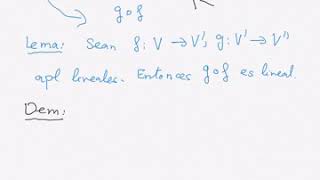 g∘f
Lema: Sean f: V → V', g: V' → V''
apl lineales. Entonces g∘f es lineal.
Dem: